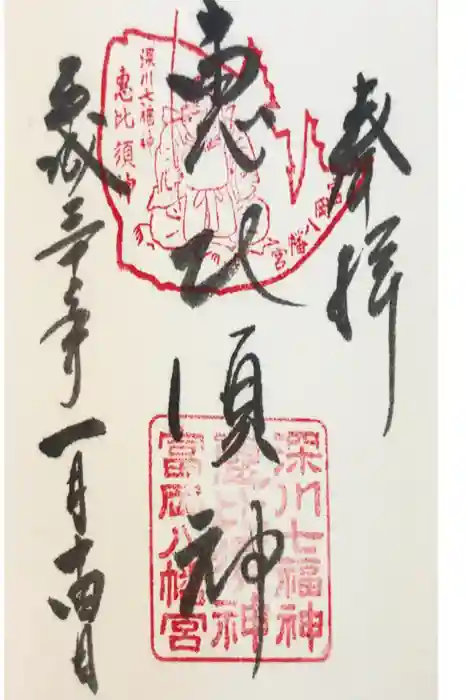 奉拝
恵比須神
平成三十年一月十四日
深川七福神
恵比須神
富岡八幡宮
深川七福神
恵比須神
富岡八幡宮